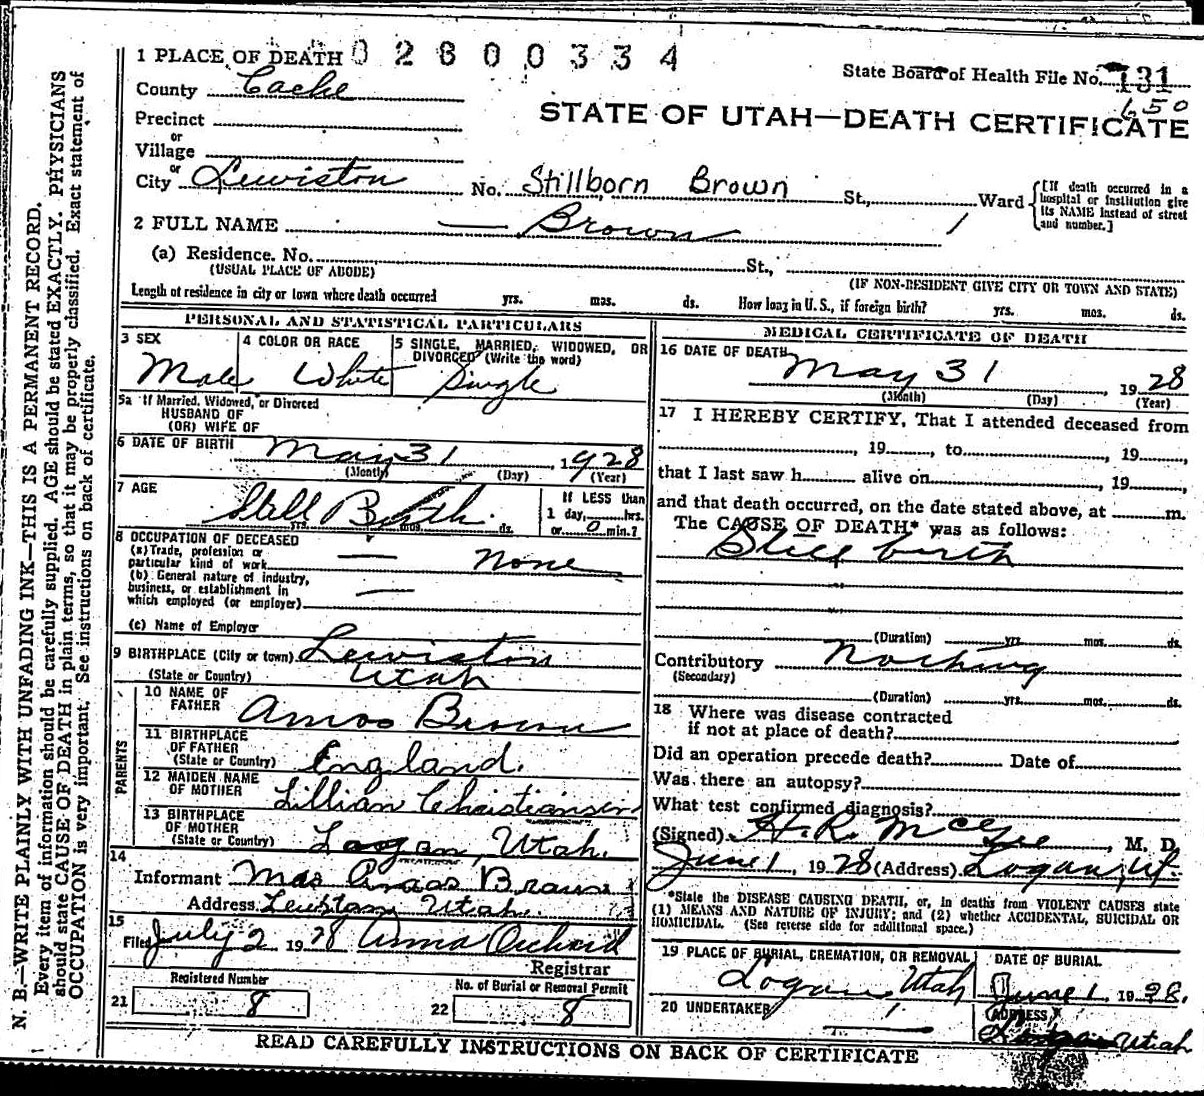 1 PLACE OF DEATH 0 2 6 0 0 3 3 4
State Board of Health File No. 131
650
County Cache
STATE OF UTAH—DEATH CERTIFICATE
Precinct
or
Village
or
City Lewiston No. Stillborn Brown St., Ward
[If death occurred in a hospital or institution give its NAME instead of street and number.]
2 FULL NAME — Brown
(a) Residence. No. St.,
(USUAL PLACE OF ABODE) (IF NON-RESIDENT GIVE CITY OR TOWN AND STATE)
Length of residence in city or town where death occurred yrs. mos. ds. How long in U. S., if foreign birth? yrs. mos. ds.
PERSONAL AND STATISTICAL PARTICULARS
3 SEX 4 COLOR OR RACE 5 SINGLE, MARRIED, WIDOWED, OR DIVORCED (Write the word)
Male White Single
5a If Married, Widowed, or Divorced
HUSBAND OF
(OR) WIFE OF
6 DATE OF BIRTH May 31, 1928
(Month) (Day) (Year)
7 AGE Still Birth
yrs. mos. ds.
If LESS than
1 day, hrs.
or 0 min.?
8 OCCUPATION OF DECEASED
(a) Trade, profession or
particular kind of work — None
(b) General nature of industry,
business, or establishment in
which employed (or employer) —
(c) Name of Employer
9 BIRTHPLACE (City or town) Lewiston
(State or Country) Utah
PARENTS
10 NAME OF
FATHER Amos Brown
11 BIRTHPLACE
OF FATHER
(State or Country) England.
12 MAIDEN NAME
OF MOTHER Lillian Christiansen
13 BIRTHPLACE
OF MOTHER
(State or Country) Logan, Utah.
14
Informant Mrs Amos Brown
Address Lewiston Utah.
15
Filed July 2 1928 Anna Orchard
Registrar
Registered Number
21 8
No. of Burial or Removal Permit
22 8
MEDICAL CERTIFICATE OF DEATH
16 DATE OF DEATH
May 31, 1928
(Month) (Day) (Year)
17 I HEREBY CERTIFY, That I attended deceased from
, 19, to, 19,
that I last saw h alive on, 19,
and that death occurred, on the date stated above, at m.
The CAUSE OF DEATH* was as follows:
Still birth
(Duration) yrs. mos. ds.
Contributory Nothing
(Secondary)
(Duration) yrs. mos. ds.
18 Where was disease contracted
if not at place of death?
Did an operation precede death? Date of
Was there an autopsy?
What test confirmed diagnosis?
(Signed) H. R. McGee, M. D.
June 1, 1928 (Address) Logan, Ut.
*State the DISEASE CAUSING DEATH, or, in deaths from VIOLENT CAUSES state
(1) MEANS AND NATURE OF INJURY; and (2) whether ACCIDENTAL, SUICIDAL OR
HOMICIDAL. (See reverse side for additional space.)
19 PLACE OF BURIAL, CREMATION, OR REMOVAL DATE OF BURIAL
Logan, Utah June 1 1928.
20 UNDERTAKER ADDRESS
Utah
READ CAREFULLY INSTRUCTIONS ON BACK OF CERTIFICATE
N. B.—WRITE PLAINLY WITH UNFADING INK—THIS IS A PERMANENT RECORD.
Every item of information should be carefully supplied. AGE should be stated EXACTLY. PHYSICIANS
should state CAUSE OF DEATH in plain terms, so that it may be properly classified. Exact statement of
OCCUPATION is very important. See instructions on back of certificate.